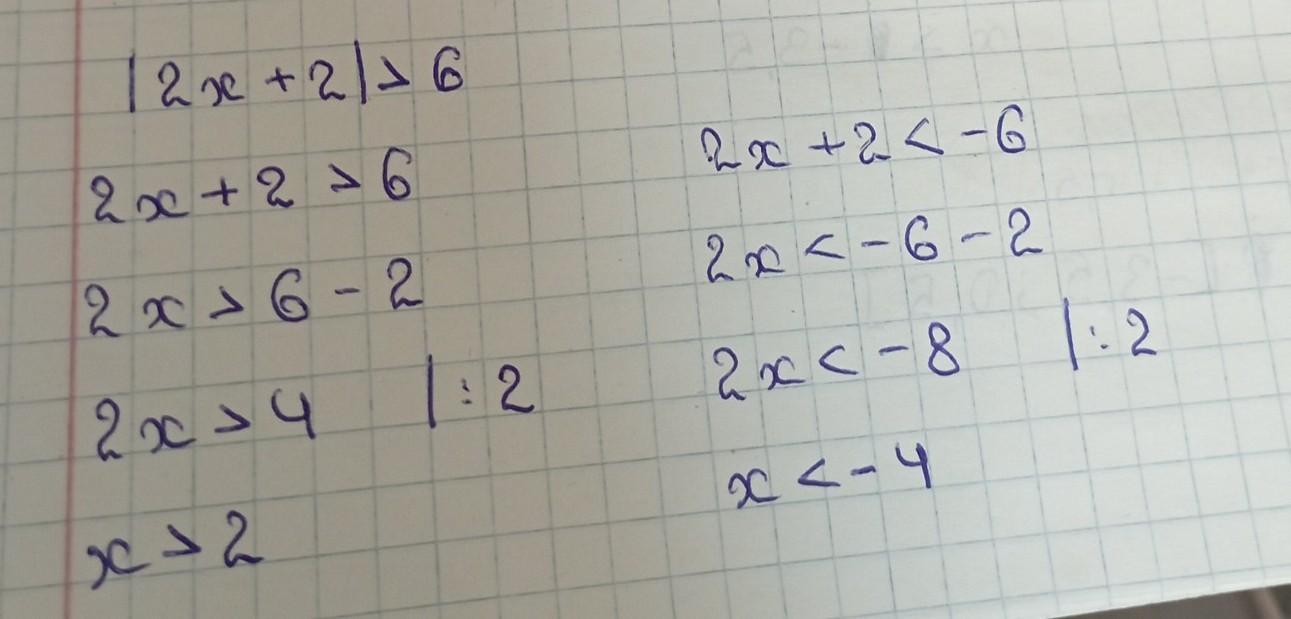 |2x+2|>6
2x+2>6
2x>6-2
2x>4 |:2
x>2
2x+2<-6
2x<-6-2
2x<-8 |:2
x<-4